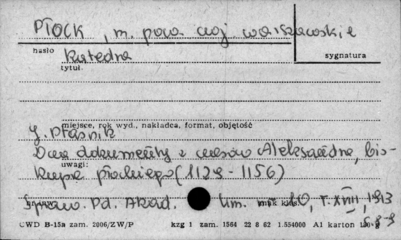 PŁOCK, m. pow. woj. warszawskie
hasło sygnatura
Katedra
tytuł
miejsce, rok wyd., nakładca, format, objętość
J. Ptaśnik
Dwa dokumenty z czasów Aleksandra, bis-
uwagi:
kupa płockiego (1129-1156)
Spraw. Pd. Akad. Um. T. XVIII, 1913
s. 8-9
CWD B-15a zam. 2006/ZW/P kzg 1 zam. 1564 22 8 62 1.554000 A1 karton